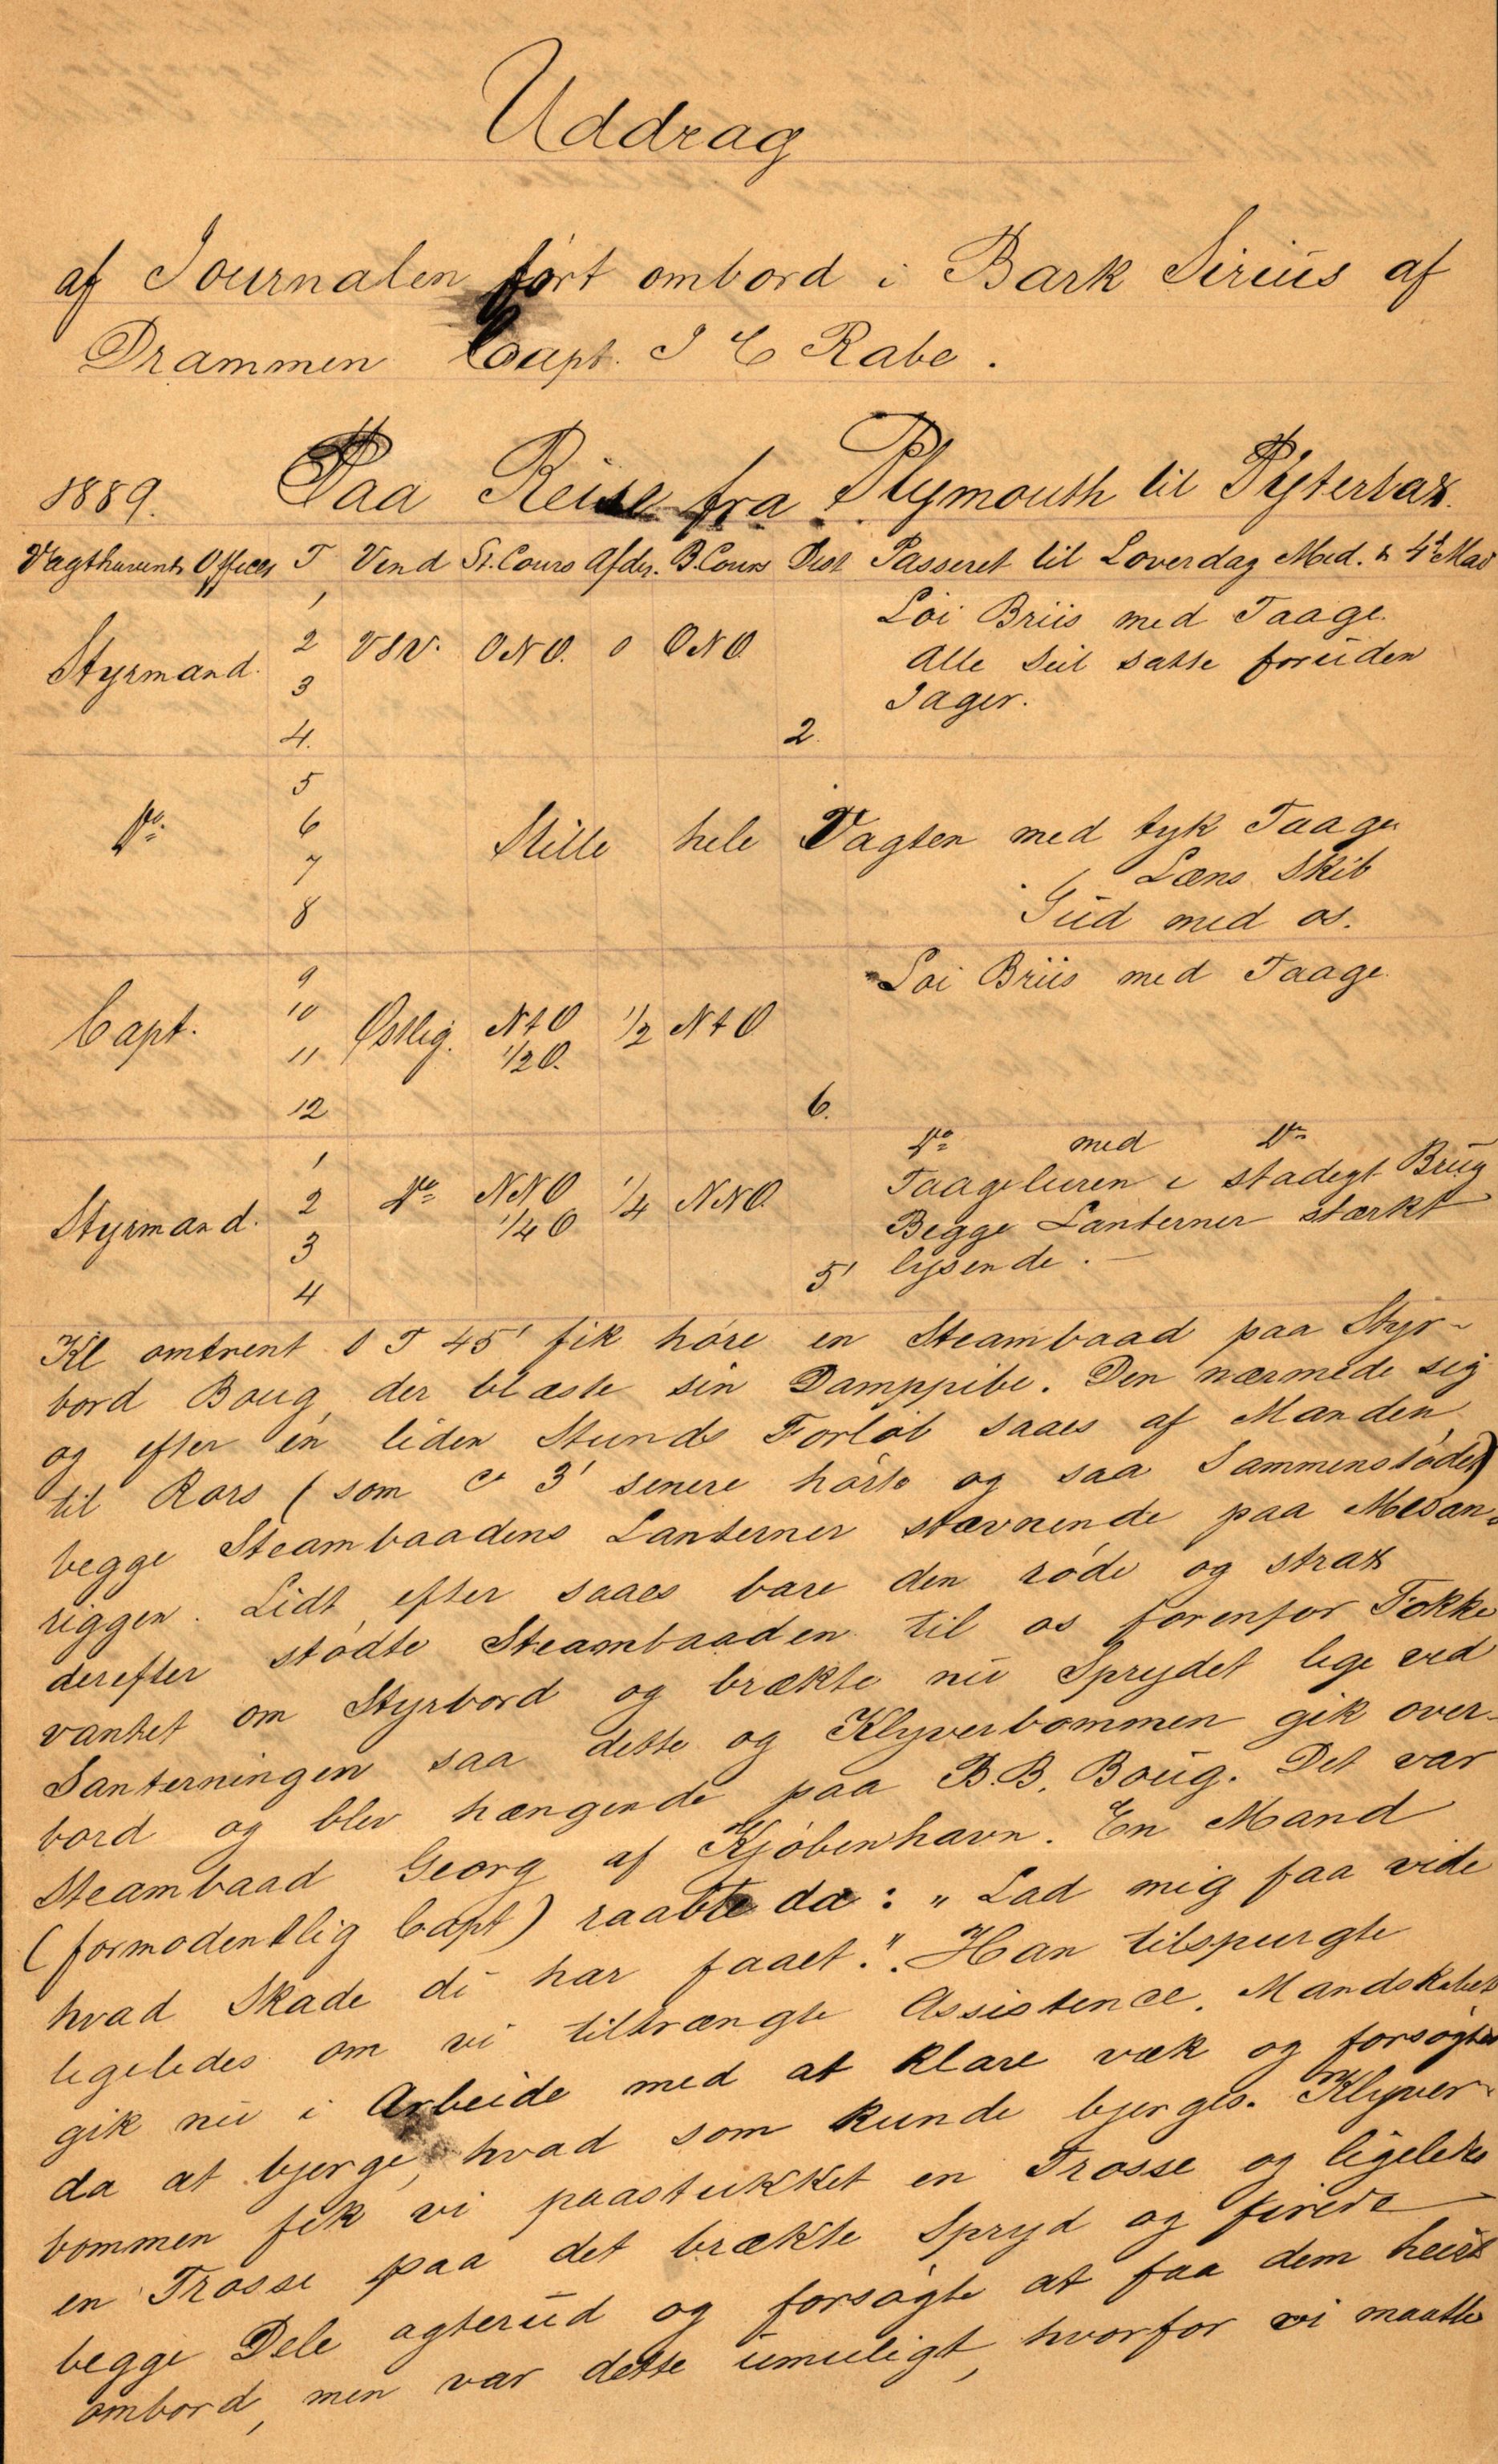 Uddrag
af Journalen ført ombord i Bark Sirius af
Drammen Capt. J C Rabe.
1889. Paa Reise fra Plymouth til
Vagthavende Officer T Vind St. Cours Afdr. B. Cours Dist Passeret til Loverdag Mid. d. 4de Mai
1 Löi Briis med Taage.
Styrmand. 2 VSV. ONO. 0 ONO. Alle Seil satte foruden
3 Jager.
4. 2.
5
Do. 6 Stille hele Vagten med tyk Taage
7 Læns Skib
8 Gud med os.
9 Löi Briis med Taage.
Capt. 10 Østlig. NtO 1/2 NtO
11 1/2 O.
12 6.
1 Do med Do
Styrmand. 2 Do NNO 1/4 NNO. Taageluren i stadigt Brug
3 1/4 O Begge Lanterner stærkt
4 5' lysende. —
Kl omtrent 0 T 45' fik höre en Steambaad paa Styr-
bord Boug, der blæste sin Damppibe. Den nærmede sig
og efter en liden Stunds Forløb saaes af Manden
til Rors (som ca 3' senere hörte og saa Sammenstödet)
begge Steambaadens Lanterner stævnende paa Mesan-
riggen. Lidt efter saaes bare den röde og strax
derefter stödte Steambaaden til os forenfor Fokke
vantet om Styrbord og brækte nu Sprydet lige ved
Santerningen saa dette og Klyverbommen gik over-
bord og blev hængende paa B.B. Boug. Det var
Steambaad Georg af Kjöbenhavn. En Mand
(formodentlig Capt) raabte da: „Lad mig faa vide
hvad Skade di har faaet.". Han tilspurgte
ligeledes om vi tiltrængte Assistence. Mandskabet
gik nu i Arbeide med at klare væk og forsögte
da at bjerge, hvad som kunde bjerges. Klyver-
bommen fik vi paastukket en Trosse og ligeledes
en Trosse paa det brækte Spryd og firede
begge Dele agterud og forsögte at faa dem heist
ombord, men var dette umuligt, hvorfor vi maatte